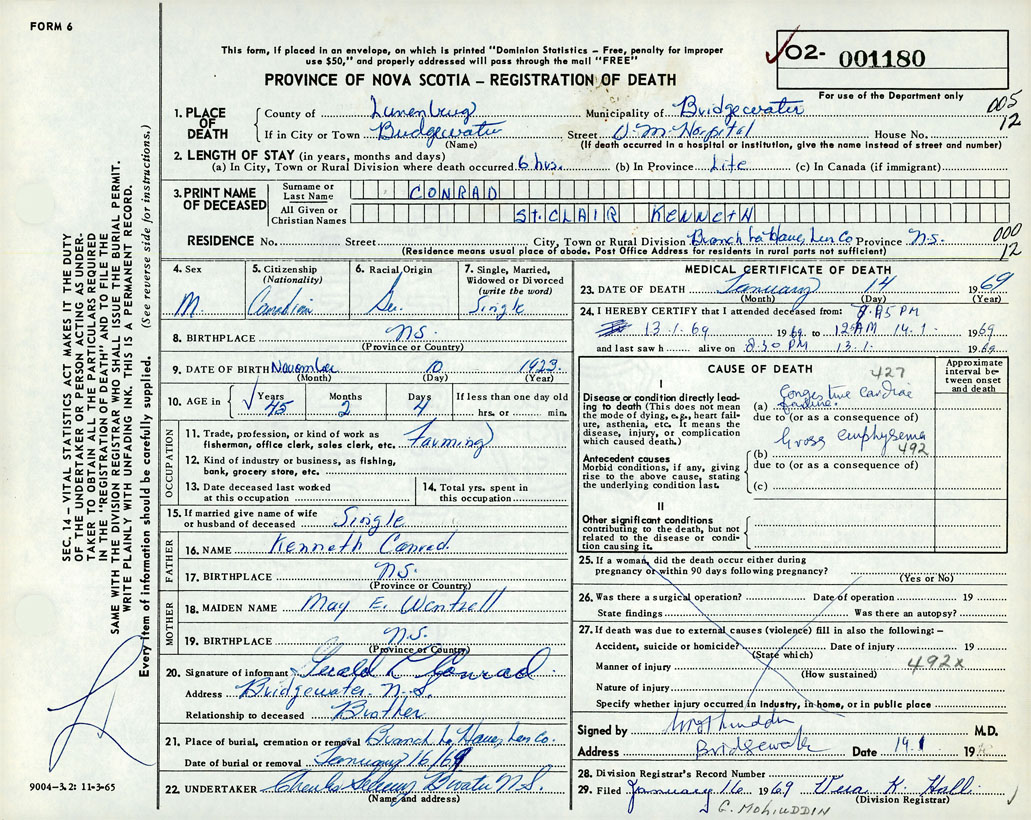 FORM 6
This form, if placed in an envelope, on which is printed "Dominion Statistics – Free, penalty for improper
use $50," and properly addressed will pass through the mail "FREE"
PROVINCE OF NOVA SCOTIA – REGISTRATION OF DEATH
02- 001180
For use of the Department only
005
12
1. PLACE OF DEATH
County of Lunenburg Municipality of Bridgewater
If in City or Town Bridgewater Street D. M. Hospital House No.
(Name) (If death occurred in a hospital or institution, give the name instead of street and number)
2. LENGTH OF STAY (in years, months and days)
(a) In City, Town or Rural Division where death occurred 6 hrs. (b) In Province Life (c) In Canada (if immigrant)
3. PRINT NAME OF DECEASED
Surname or Last Name CONRAD
All Given or Christian Names St. CLAIR KENNETH
000
12
RESIDENCE No. Street City, Town or Rural Division Branch La Have, Lun Co Province N.S.
(Residence means usual place of abode. Post Office Address for residents in rural parts not sufficient)
4. Sex M.
5. Citizenship (Nationality) Canadian
6. Racial Origin
7. Single, Married, Widowed or Divorced (write the word) Single
8. BIRTHPLACE N.S.
(Province or Country)
9. DATE OF BIRTH November 10 1923
(Month) (Day) (Year)
10. AGE in Years 45 Months 2 Days 4 If less than one day old hrs. or min.
OCCUPATION
11. Trade, profession, or kind of work as fisherman, office clerk, sales clerk, etc. Farming
12. Kind of industry or business, as fishing, bank, grocery store, etc.
13. Date deceased last worked at this occupation
14. Total yrs. spent in this occupation
15. If married give name of wife or husband of deceased Single
FATHER
16. NAME Kenneth Conrad
17. BIRTHPLACE N.S.
(Province or Country)
MOTHER
18. MAIDEN NAME May E. Wentzell
19. BIRTHPLACE N.S.
(Province or Country)
20. Signature of informant Gerald L Conrad
Address Bridgewater N-S.
Relationship to deceased Brother
21. Place of burial, cremation or removal Branch La Have, Lun Co.
Date of burial or removal January 16/69
22. UNDERTAKER Charles B'water N.S.
(Name and address)
MEDICAL CERTIFICATE OF DEATH
23. DATE OF DEATH January 14 1969
(Month) (Day) (Year)
24. I HEREBY CERTIFY that I attended deceased from: PM
13.1.69 1969 to 12 AM 14.1. 1969
and last saw h alive on 8.30 PM 13.1. 1969
CAUSE OF DEATH
Approximate interval between onset and death
427
I
Disease or condition directly leading to death (This does not mean the mode of dying, e.g., heart failure, asthenia, etc. It means the disease, injury, or complication which caused death.)
(a) Congestive cardiac failure
due to (or as a consequence of)
Gross emphysema
492
Antecedent causes
Morbid conditions, if any, giving rise to the above cause, stating the underlying condition last.
(b)
due to (or as a consequence of)
(c)
II
Other significant conditions
contributing to the death, but not related to the disease or condition causing it.
25. If a woman, did the death occur either during pregnancy or within 90 days following pregnancy?
(Yes or No)
26. Was there a surgical operation? Date of operation 19
State findings Was there an autopsy?
27. If death was due to external causes (violence) fill in also the following: –
Accident, suicide or homicide? Date of injury 19
(State which)
492x
Manner of injury
(How sustained)
Nature of injury
Specify whether injury occurred in industry, in home, or in public place
Signed by M.D.
Address Bridgewater Date 14.1 19
28. Division Registrar's Record Number
29. Filed January 16 1969 Vera K. Hall
(Division Registrar)
G. MOHIUDDIN
SEC. 14 – VITAL STATISTICS ACT MAKES IT THE DUTY
OF THE UNDERTAKER OR PERSON ACTING AS UNDER-
TAKER TO OBTAIN ALL THE PARTICULARS REQUIRED
IN THE "REGISTRATION OF DEATH" AND TO FILE THE
SAME WITH THE DIVISION REGISTRAR WHO SHALL ISSUE THE BURIAL PERMIT.
WRITE PLAINLY WITH UNFADING INK. THIS IS A PERMANENT RECORD.
Every item of information should be carefully supplied. (See reverse side for instructions.)
9004-3.2: 11-3-65